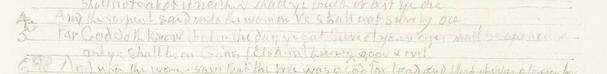 shall not eat of it neither shall ye touch it lest ye die
4 And the serpent said unto the woman Ye shall not surely die
5 For God doth know that in the day ye eat thereof your eyes shall be opened &
and ye shall be as Gods (Elohim) knowing good & evil
6 And when the woman saw that the tree was good for food and that it was pleasant to